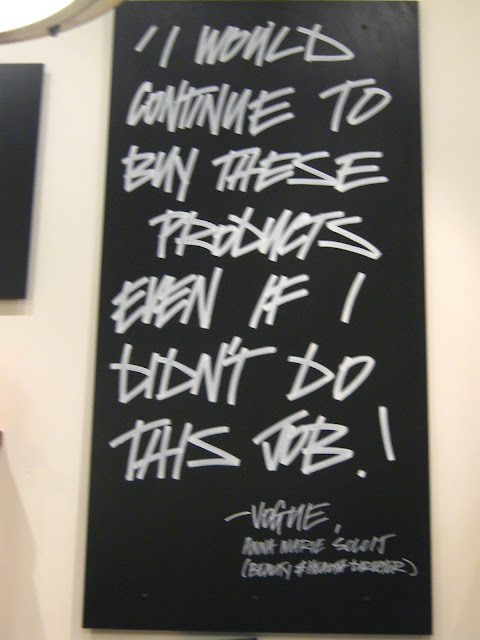 "I WOULD
CONTINUE TO
BUY THESE
PRODUCTS
EVEN IF I
DIDN'T DO
THIS JOB.!
-VOGUE,
ANNA MARIE SOLOWIJ
(BEAUTY & HEALTH DIRECTOR)